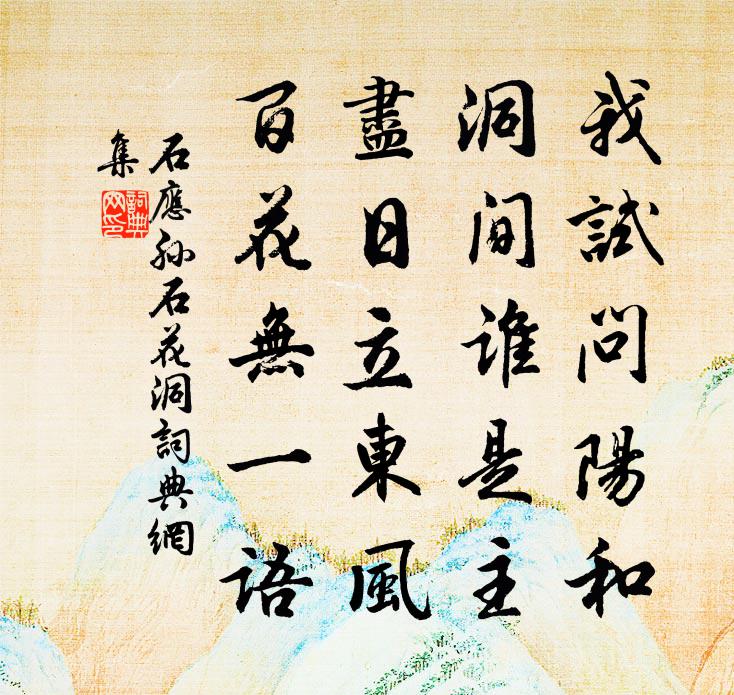 我試問陽和
洞間誰是主
盡日立東風
百花無一語
石應孫石花洞詞典網
集
詞典
网印